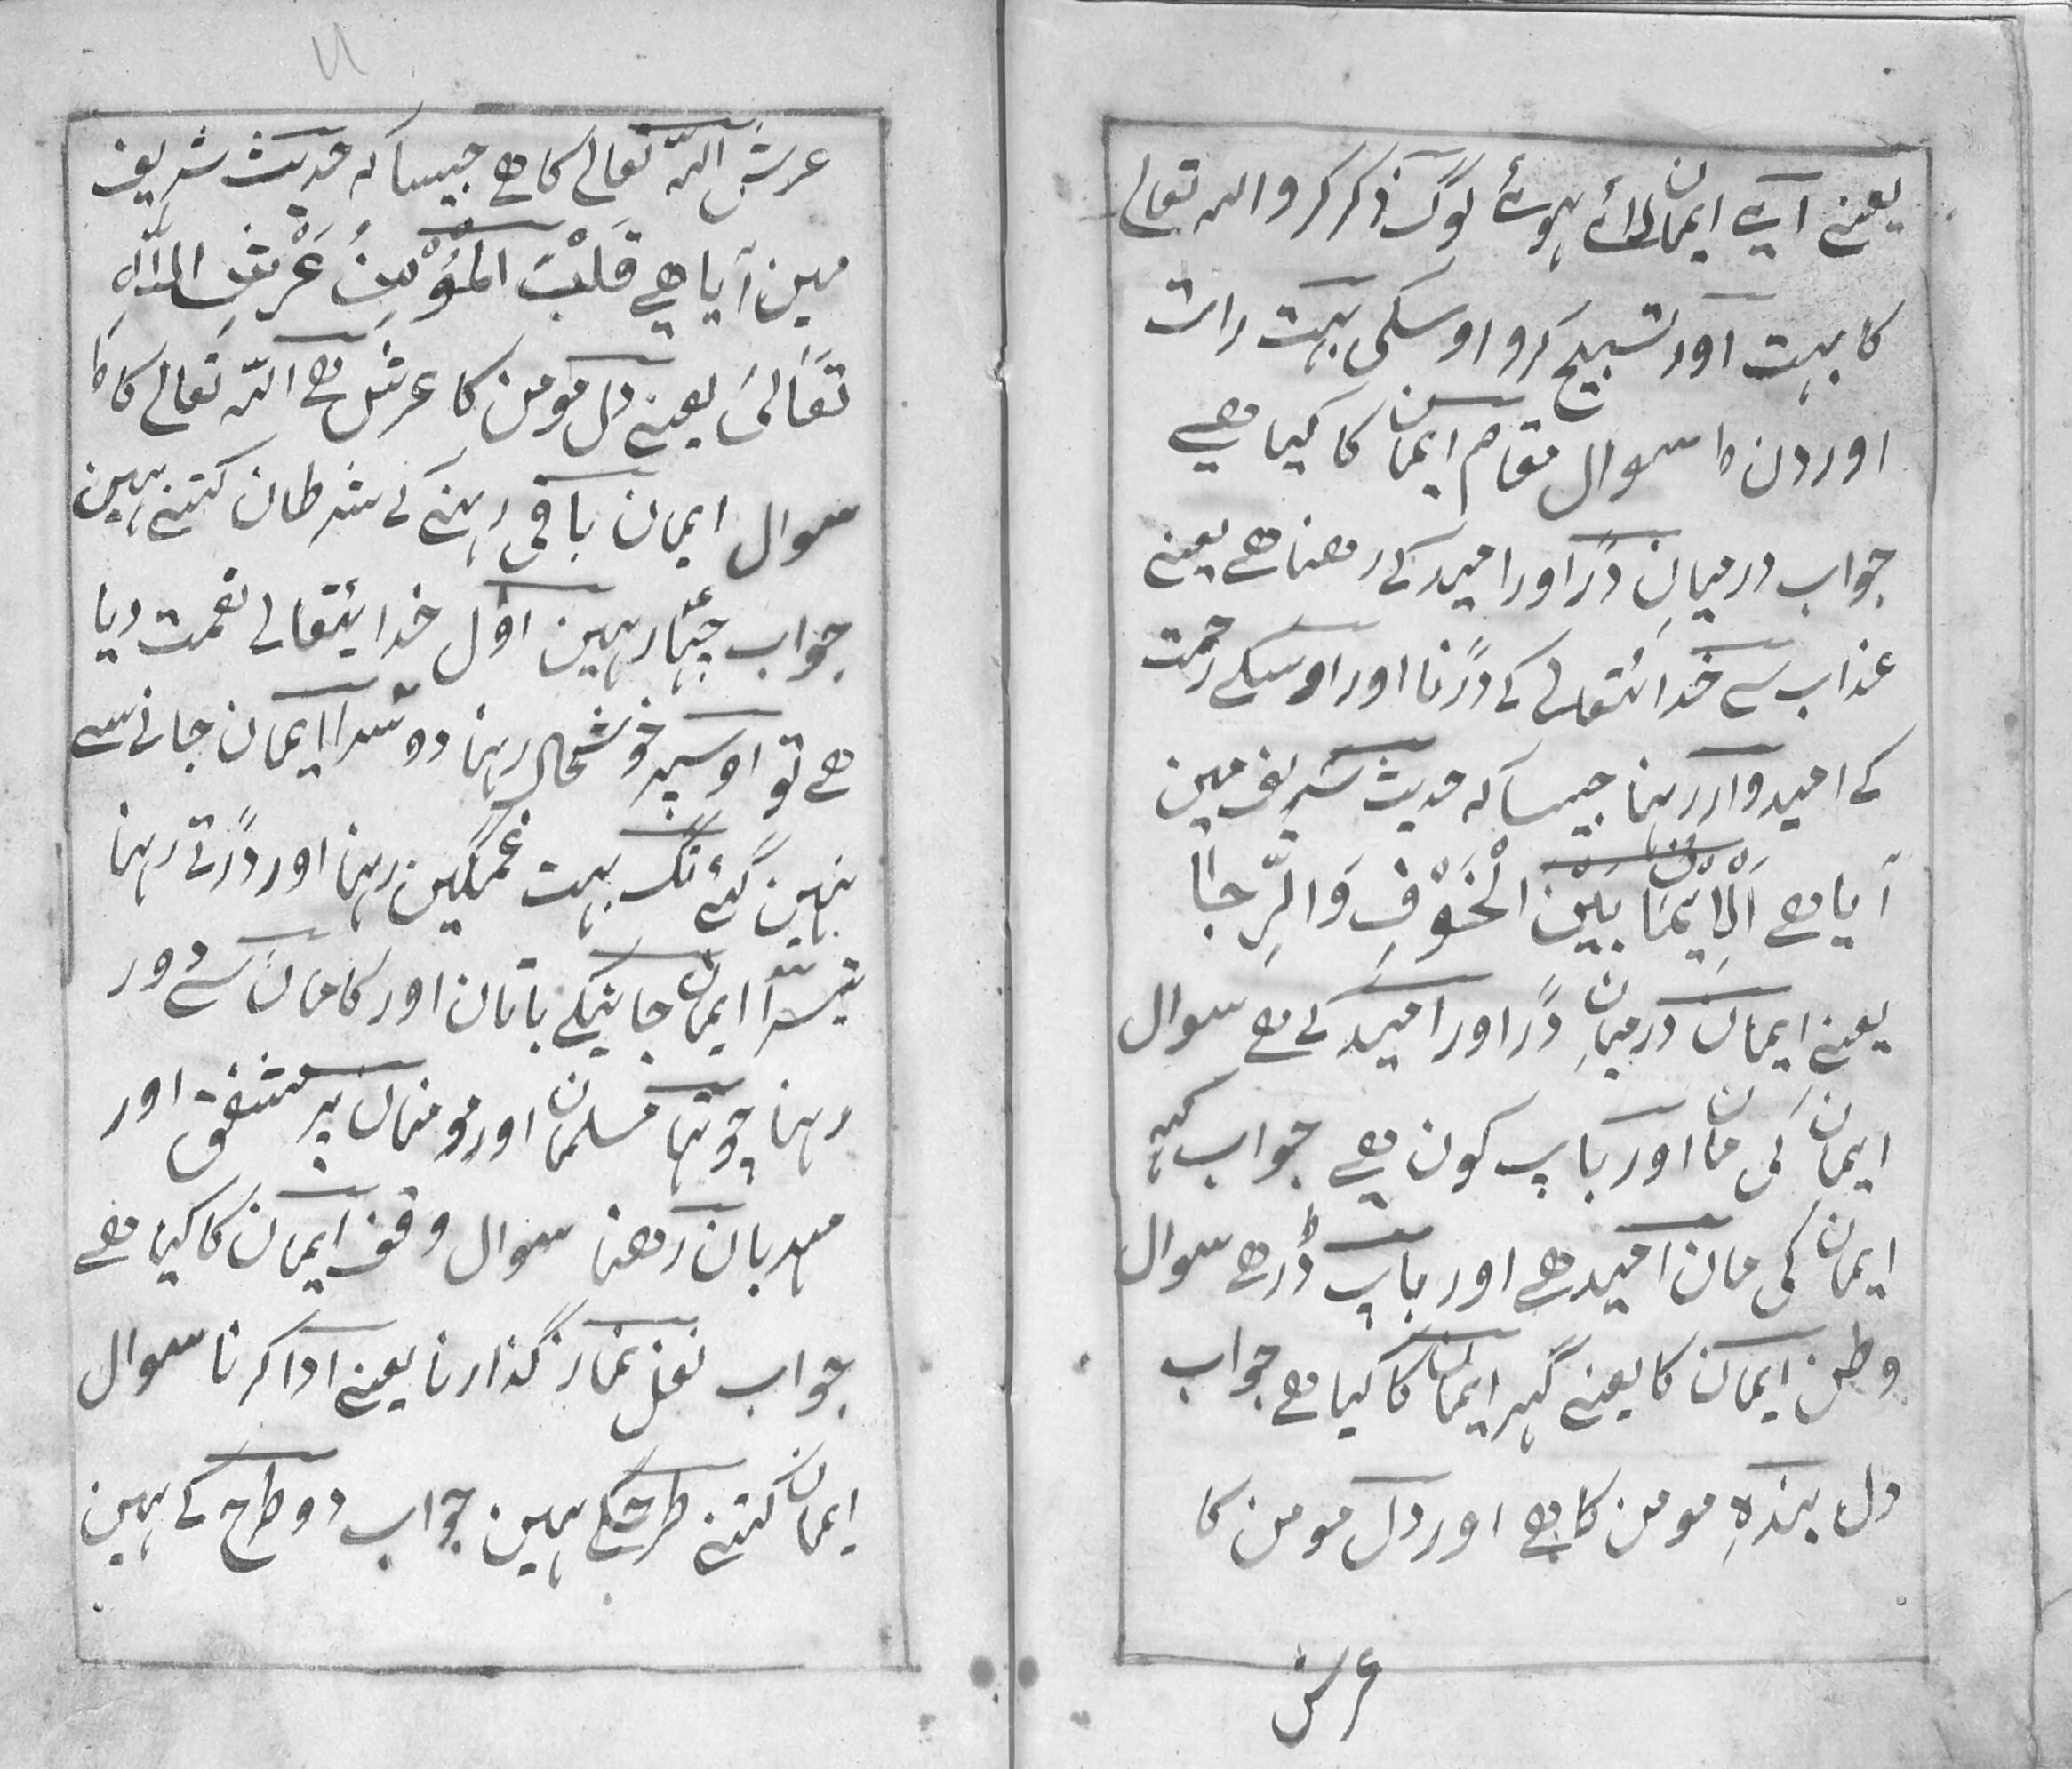 یعنے اَیے ایمان لائے ہوئے لوگ ذکر کرو اللہ تعالے
کا بہت اور تسبیح کرو اوسکی بہت رات
اور دن ۱۵ سوال مقام ایمان کا کیا ھے
جواب درمیانِ ڈر اور امید کے رھنا ھے یعنے
عذاب سے خدائتعالے کے ڈرنا اور اوسکے رحمت
کے امیدوار رہنا جیسا کہ حدیث شریف مین
آیا ھے اَلْاِیْمَان بَیْنَ الْخَوْفِ وَالرِّجَا
یعنے ایمان درمیانِ ڈر اور امید کے ھے سوال
ایمان کی مان اور باپ کون ھے جواب کہہ
ایمان کی مان امید ھے اور باپ ڈر ھے سوال
وطن ایمان کا یعنے گہر ایمان کا کیا ھے جواب
دل بندہِ مومن کا ھے اور دل مومن کا
عرش
۱۱
عرش اللہ تعالے کا ھے جیسا کہ حدیث شریف
مین آیا ھے قَلْبُ الْمُؤْمِنُ عَرْشِ اللّٰہِ
تَعَالیٰ یعنے دل مومن کا عرش ھے اللہ تعالے کا ۱۵
سوال ایمان باقی رہنے کے شرطان کتنے ہین
جواب چہار ہین اول خدایتعالے نعمت دیا
ھے تو اوسپر خوشحال رہنا دوسرا ایمان جانے سے
نہین گئے تگ بہت غمگین رہنا اور ڈرتے رہنا
تیسرا ایمان جانیکے باتان اور کامان سے دور
رہنا چوتہا مسلمان اور مومنان پر مشفق اور
مہربان رھنا سوال وقف ایمان کا کیا ھے
جواب نفل نماز گذارنا یعنے ادا کرنا سوال
ایمان کتنے طرحکے ہین جواب دو طرح کے ہین